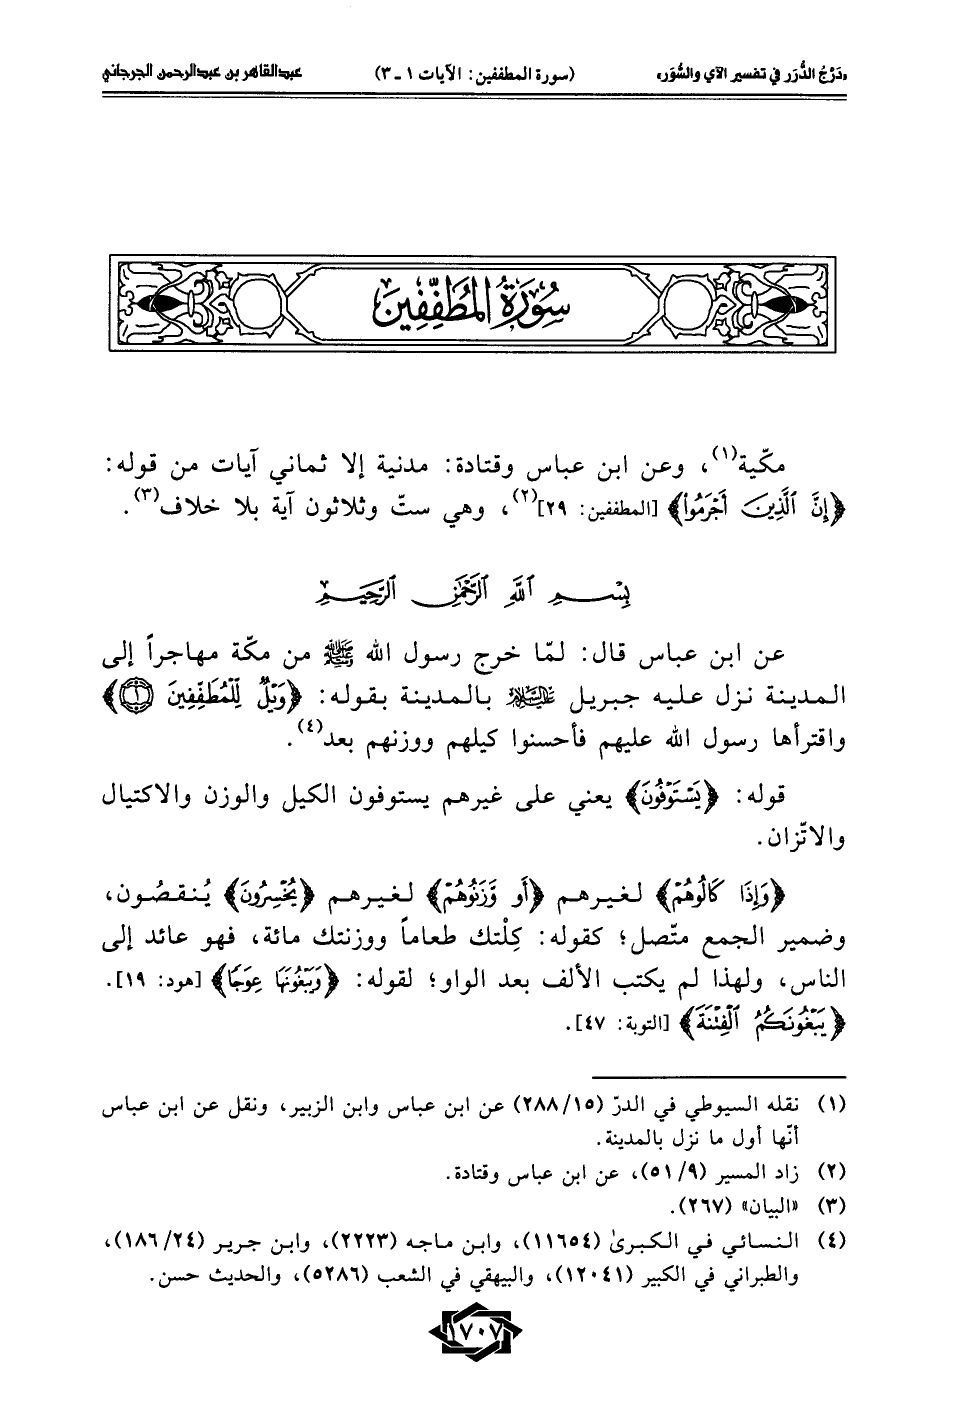 «دَرْجُ الدُّرَر في تفسير الآي والسُّوَر» (سورة المطففين: الآيات ١ ـ ٣) عبدالقاهر بن عبدالرحمن الجرجاني
سُورَةُ المُطَفِّفِينَ
مكّية(١)، وعن ابن عباس وقتادة: مدنية إلا ثماني آيات من قوله:
﴿إِنَّ ٱلَّذِينَ أَجْرَمُوا﴾ [المطففين: ٢٩](٢)، وهي ستّ وثلاثون آية بلا خلاف(٣).
بِسْمِ ٱللَّهِ ٱلرَّحْمَٰنِ ٱلرَّحِيمِ
عن ابن عباس قال: لمّا خرج رسول الله ﷺ من مكّة مهاجراً إلى
المدينة نزل عليه جبريل عليه السلام بالمدينة بقوله: ﴿وَيْلٌ لِّلْمُطَفِّفِينَ ١﴾
واقترأها رسول الله عليهم فأحسنوا كيلهم ووزنهم بعد(٤).
قوله: ﴿يَسْتَوْفُونَ﴾ يعني على غيرهم يستوفون الكيل والوزن والاكتيال
والاتّزان.
﴿وَإِذَا كَالُوهُمْ﴾ لغيرهم ﴿أَو وَّزَنُوهُمْ﴾ لغيرهم ﴿يُخْسِرُونَ﴾ يُنقصُون،
وضمير الجمع متّصل؛ كقوله: كِلْتك طعاماً ووزنتك مائة، فهو عائد إلى
الناس، ولهذا لم يكتب الألف بعد الواو؛ لقوله: ﴿وَيَبْغُونَهَا عِوَجًا﴾ [هود: ١٩].
﴿يَبْغُونَكُمُ ٱلْفِتْنَةَ﴾ [التوبة: ٤٧].
(١) نقله السيوطي في الدرّ (٢٨٨/١٥) عن ابن عباس وابن الزبير، ونقل عن ابن عباس
أنّها أول ما نزل بالمدينة.
(٢) زاد المسير (٥١/٩)، عن ابن عباس وقتادة.
(٣) «البيان» (٢٦٧).
(٤) النسائي في الكبرىٰ (١١٦٥٤)، وابن ماجه (٢٢٢٣)، وابن جرير (١٨٦/٢٤)،
والطبراني في الكبير (١٢٠٤١)، والبيهقي في الشعب (٥٢٨٦)، والحديث حسن.
١٧٠٧